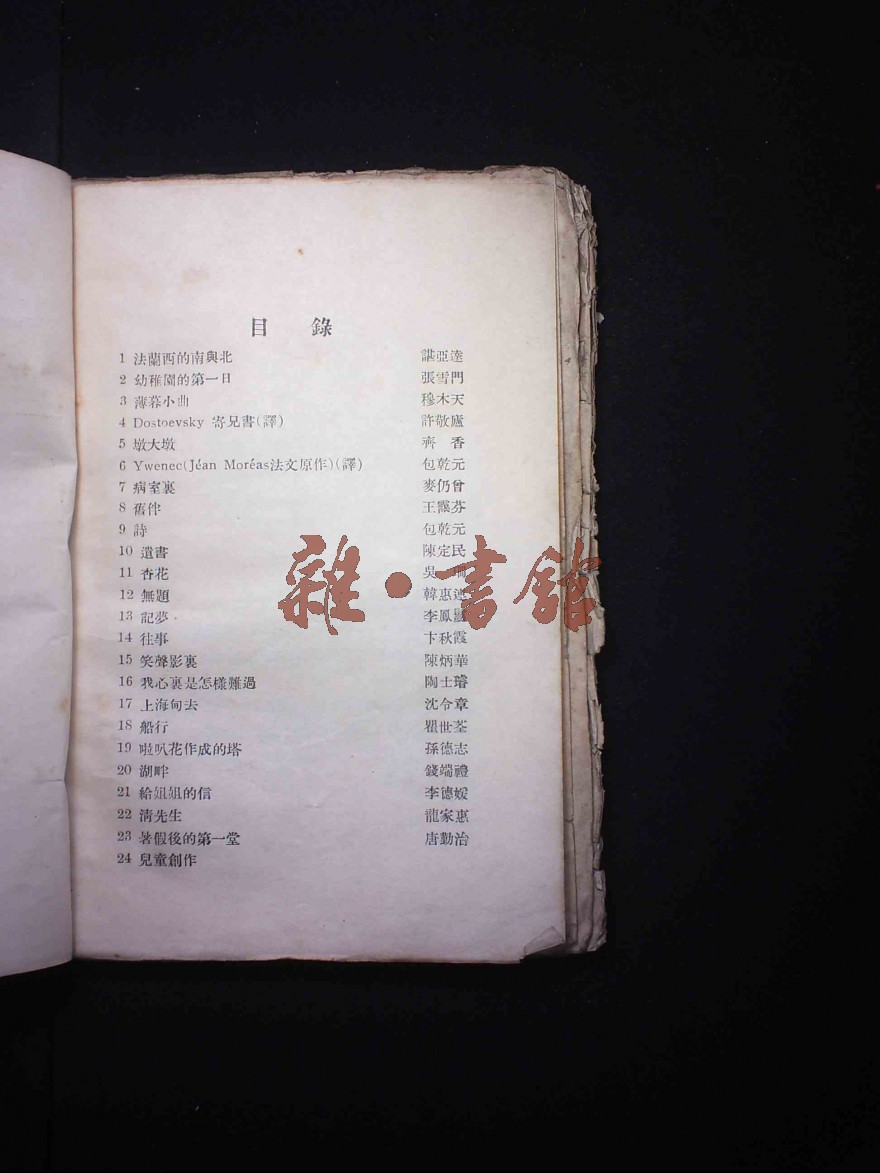 目 錄
1 法蘭西的南與北 諶亞達
2 幼稚園的第一日 張雪門
3 薄暮小曲 穆木天
4 Dostoevsky 寄兄書(譯) 許敬廬
5 墩大墩 齊 香
6 Ywenec(Jéan Moréas法文原作)(譯) 包乾元
7 病室裏 麥仍曾
8 舊伴 王靄芬
9 詩 包乾元
10 遺書 陳定民
11 杏花 吳
12 無題 韓惠
13 記夢 李鳳
14 往事 卞秋霞
15 笑聲影裏 陳炳華
16 我心裏是怎樣難過 陶士璿
17 上海甸去 沈令章
18 船行 瞿世荃
19 啦叭花作成的塔 孫德志
20 湖畔 錢端禮
21 給姐姐的信 李德媛
22 清先生 龍家惠
23 暑假後的第一堂 唐勤治
24 兒童創作
雜·書館